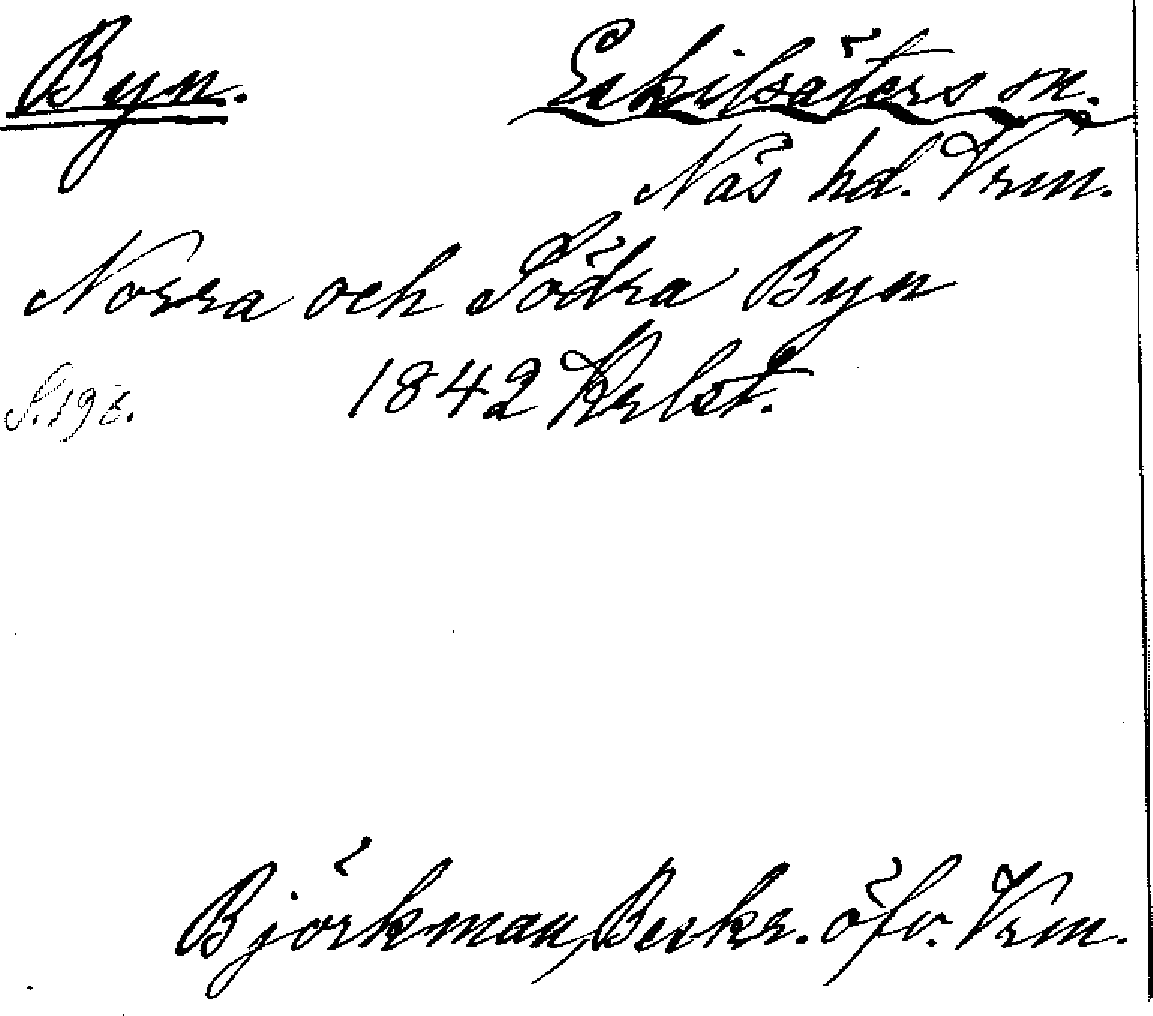 Byn. Eskilsäters sn.
Näs hd. Vrm.
Norra och Södra Byn
S. 198. 1842 Krlst.
Björkman, Beskr. öfv. Vrm.